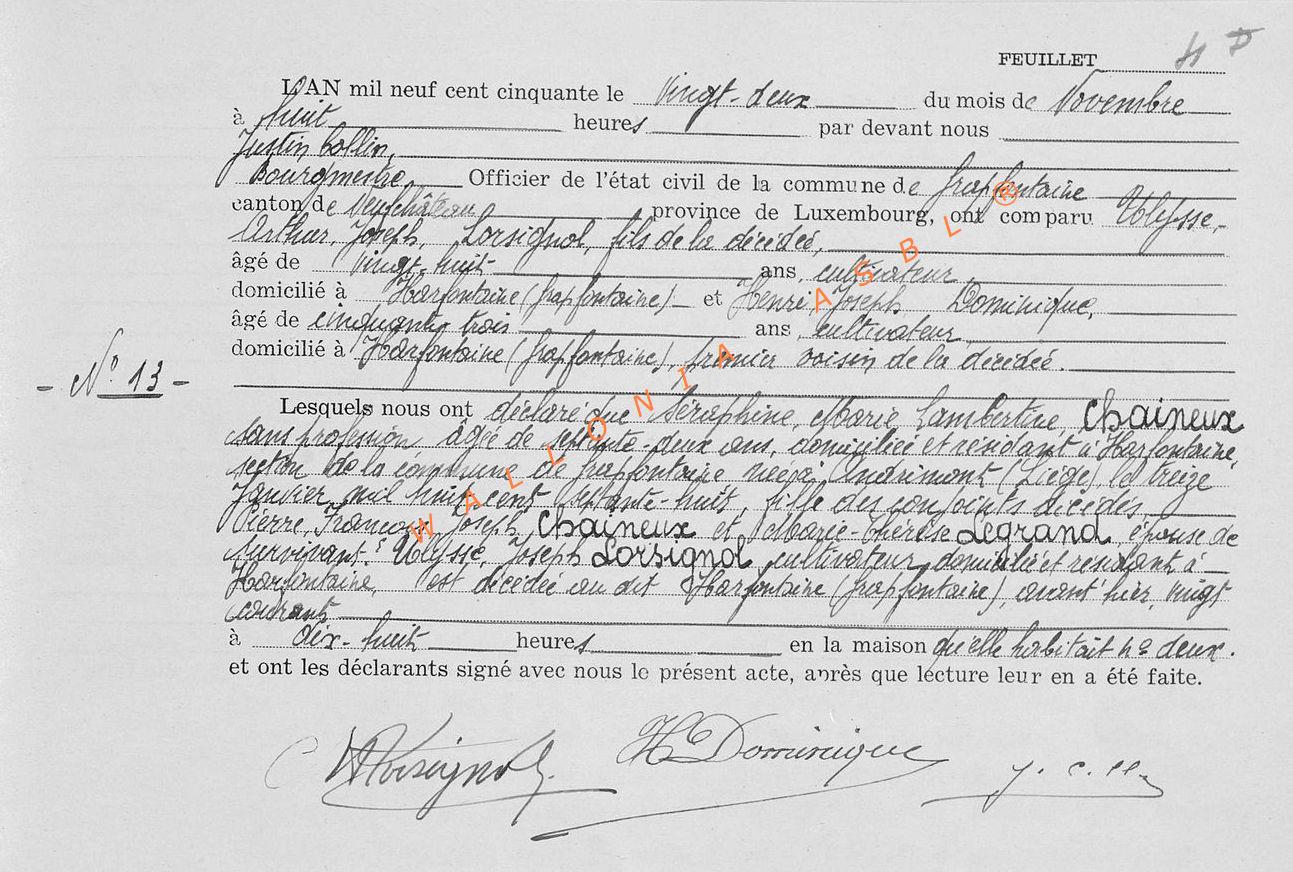 FEUILLET
L'AN mil neuf cent cinquante le vingt-deux du mois de Novembre
à huit heures par devant nous
Justin Collin,
Bourgmestre, Officier de l'état civil de la commune de Grapfontaine
canton de Neufchâteau province de Luxembourg, ont comparu Ulysse,
Arthur, Joseph, Lorsignol, fils de la décédée,
âgé de vingt-huit ans, cultivateur,
domicilié à Harfontaine (Grapfontaine) et Henri, Joseph Dominique,
âgé de cinquante trois ans, cultivateur,
domicilié à Harfontaine (Grapfontaine), premier voisin de la décédée.
- No 13 -
Lesquels nous ont déclaré que Séraphine, Marie, Lambertine, Chaineux
sans profession, âgée de septante-deux ans, domiciliée et résidant à Harfontaine,
section de la commune de Grapfontaine née à Andrimont (Liège), le treize
Janvier mil huit cent septante-huit, fille des conjoints décédés
Pierre, François, Joseph, Chaineux et Marie-Thérèse Legrand, épouse de
survivant: Ulysse, Joseph Lorsignol, cultivateur, domicilié et résidant à
Harfontaine, est décédée au dit Harfontaine (Grapfontaine), avant hier, vingt
courant
à dix-huit heures en la maison qu'elle habitait no deux.
et ont les déclarants signé avec nous le présent acte, après que lecture leur en a été faite.
Lorsignol. H Dominique
WALLONIA ASBL ®